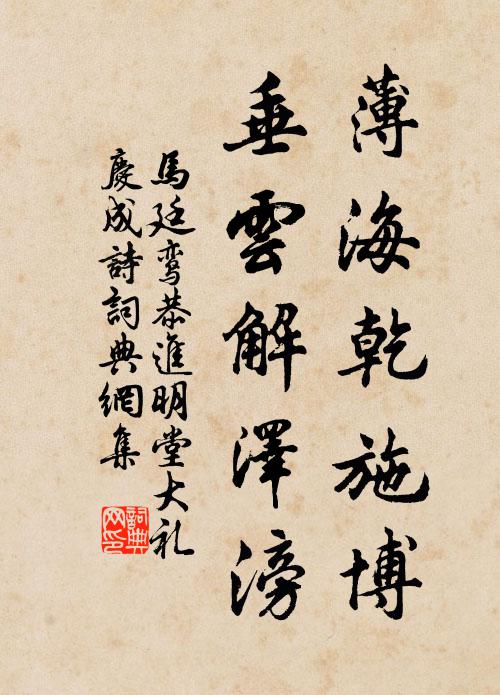 薄海乾施博
垂雲解澤滂
馬廷鸾恭進明堂大礼
慶成詩詞典網集
詞典网印